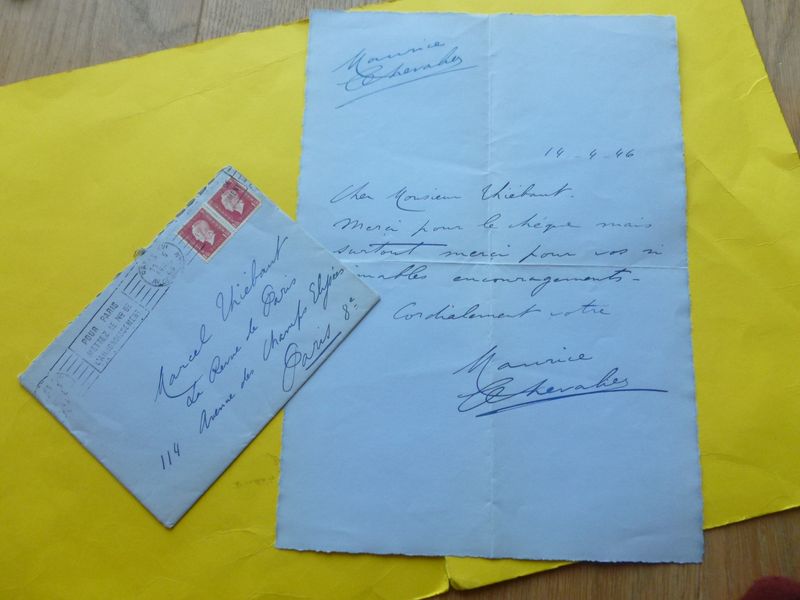 Maurice
Chevalier
14-4-46
Cher Monsieur Thiébaut.
Merci pour le chèque mais
surtout merci pour vos si
aimables encouragements-
Cordialement votre
Maurice
Chevalier
POUR PARIS
METTEZ LE No DE
L'ARRONDISSEMENT
Marcel Thiébaut
La Revue de Paris
114 Avenue des Champs Elysées
Paris 8e